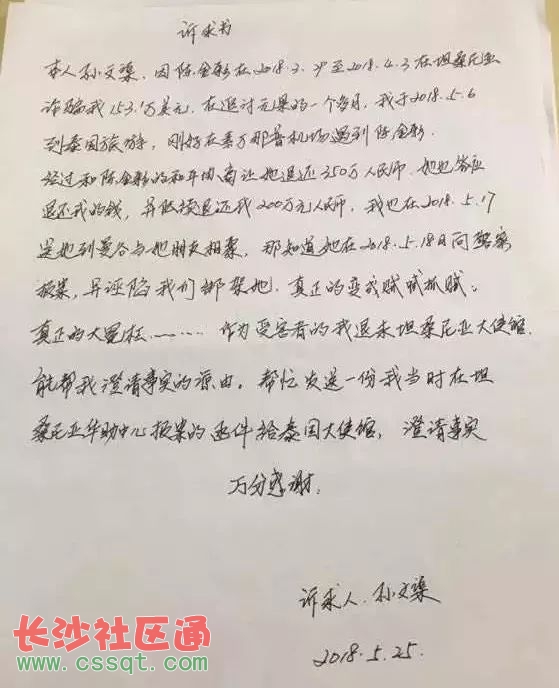 诉求书
本人孙文梁,因陈金彩在2018.3.29至2018.4.3在坦桑尼亚
诈骗我153.1万美元.在追讨无果的一个多月,我于2018.5.6
到泰国旅游,刚好在素万那普机场遇到陈金彩.
经过和陈金彩的和平协商让她退还350万人民币.她也答应
退还我的钱,并陆续退还我200万元人民币,我也在2018.5.17
送她到曼谷与她朋友相聚,那知道她在2018.5.18日向警察
报案,并诬陷我们绑架她.真正的变成贼喊抓贼。
真正的大冤枉……作为受害者的我恳求坦桑尼亚大使馆.
能帮我澄请事实的源由。帮忙发送一份我当时在坦
桑尼亚华助中心报案的函件给泰国大使馆,澄请事实
万分感谢.
诉求人.孙文梁
2018.5.25.
长沙社区通
www.cssqt.com